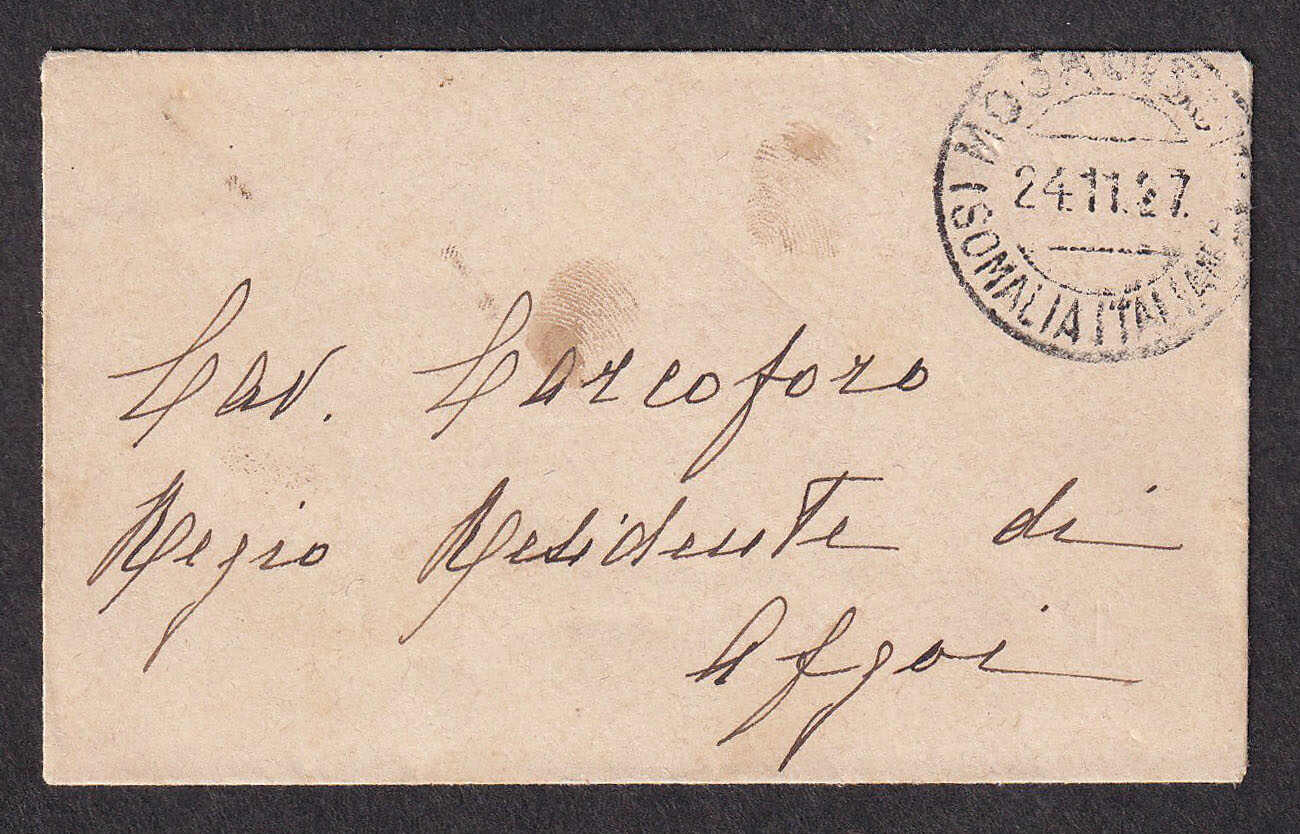 MOGADISC
24.11.27.
(SOMALIA ITALIANA
Cav. Carcoforo
Regio Residente di
Afgoi